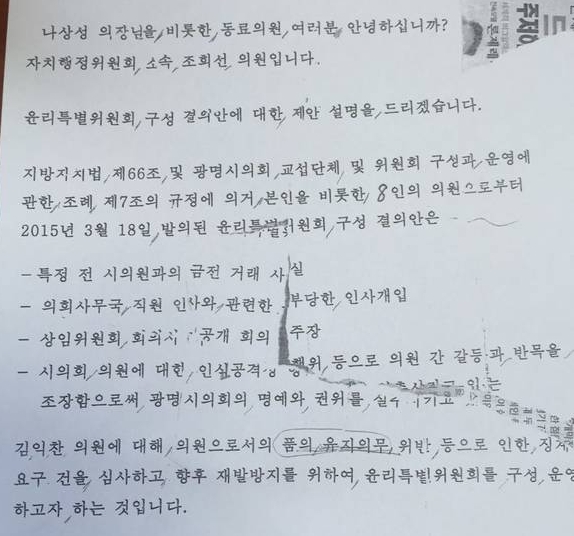 나상성 의장님을 비롯한 동료의원 여러분 안녕하십니까?
자치행정위원회 소속 조희선 의원입니다.
윤리특별위원회 구성 결의안에 대한 제안 설명을 드리겠습니다.
지방자치법 제66조 및 광명시의회 교섭단체 및 위원회 구성과 운영에
관한 조례 제7조의 규정에 의거 본인을 비롯한 8인의 의원으로부터
2015년 3월 18일 발의된 윤리특별위원회 구성 결의안은
- 특정 전 시의원과의 금전 거래 사실
- 의회사무국 직원 인사와 관련한 부당한 인사개입
- 상임위원회 회의시 공개 회의 주장
- 시의회 의원에 대한 인신공격성 행위 등으로 의원 간 갈등과 반목을
조장함으로써 광명시의회의 명예와 권위를 실추
김익찬 의원에 대해 의원으로서의 품의 유지의무 위반 등으로 인한 징계
요구 건을 심사하고 향후 재발방지를 위하여 윤리특별위원회를 구성 운영
하고자 하는 것입니다.